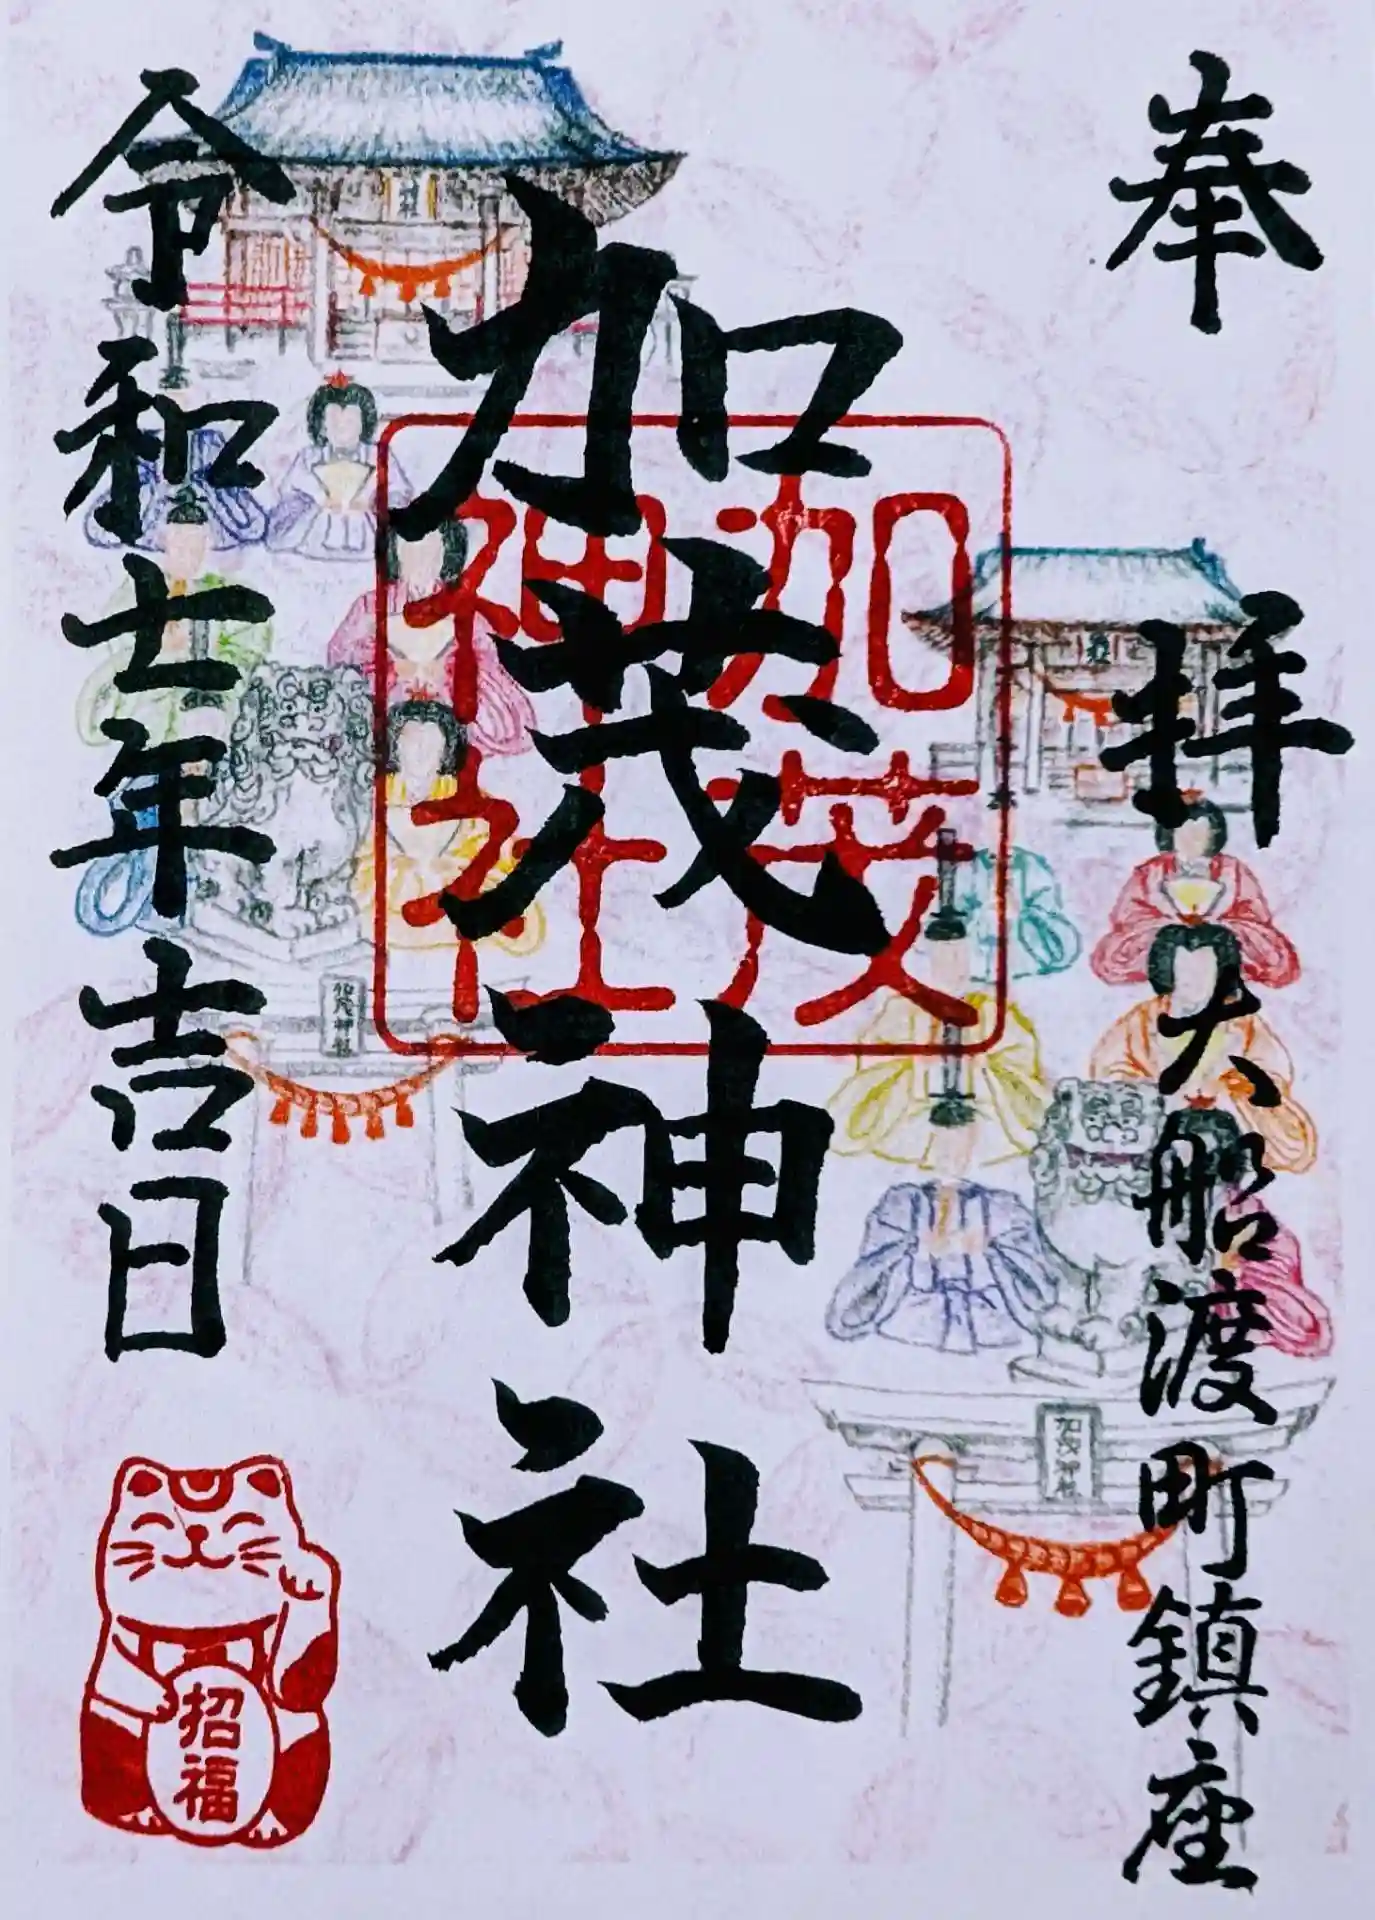 奉拝
大船渡町鎮座
加茂神社
加茂
神社
令和七年吉日
加茂神社
加茂神社
招福